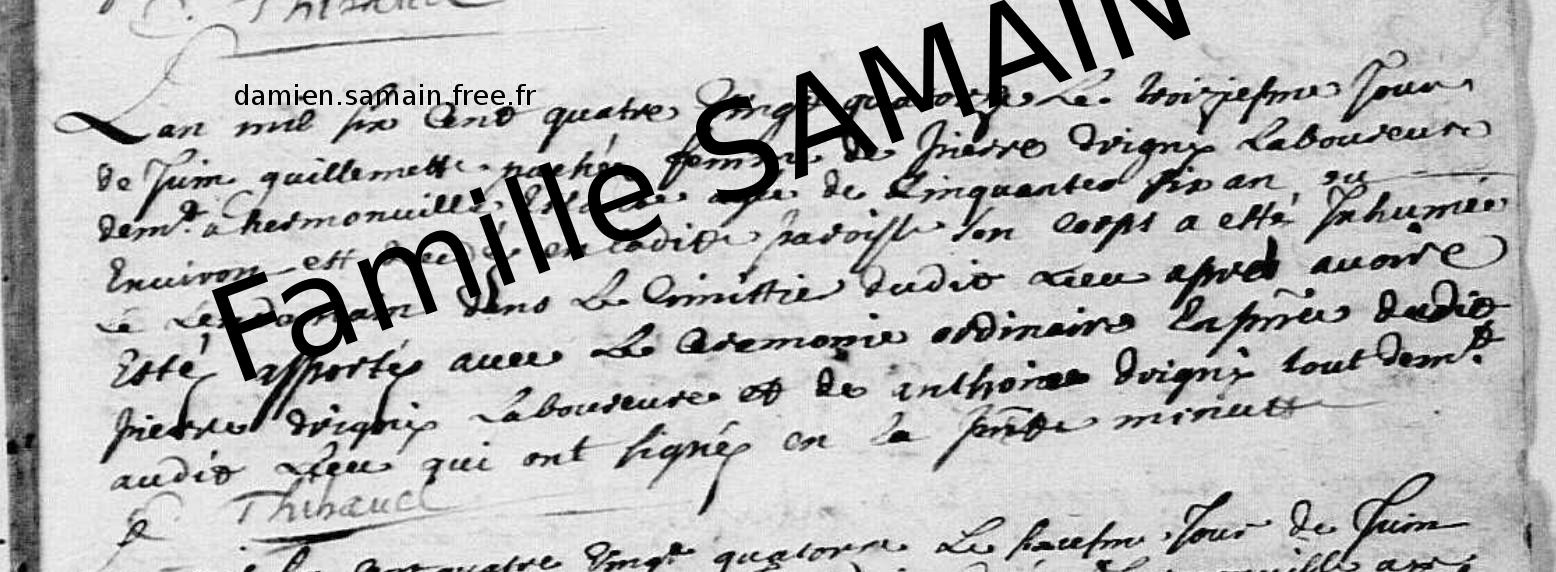 Thibaud
Famille SAMAIN
damien.samain.free.fr
Lan mil six Cent quatre Vingt quatorze Le troiziesme Jour
de Juin guillemette femme de pierre drigny Laboureure
demt a hermonville age de Cinquantes six an ou
Environ est en ladite paroisse son corps a esté Inhumée
Le Lendemain dans Le Cimittier dudit Lieu apres avoire
Esté apportés avec Le Ceremonie ordinaire En pñce dudit
pierre drigny Laboureure et de anthoine drigny tout demt
audit Lieu qui ont signéz en la pñte minutte
Thibaud
quatre Vingt quatorze Le Jour de Juin